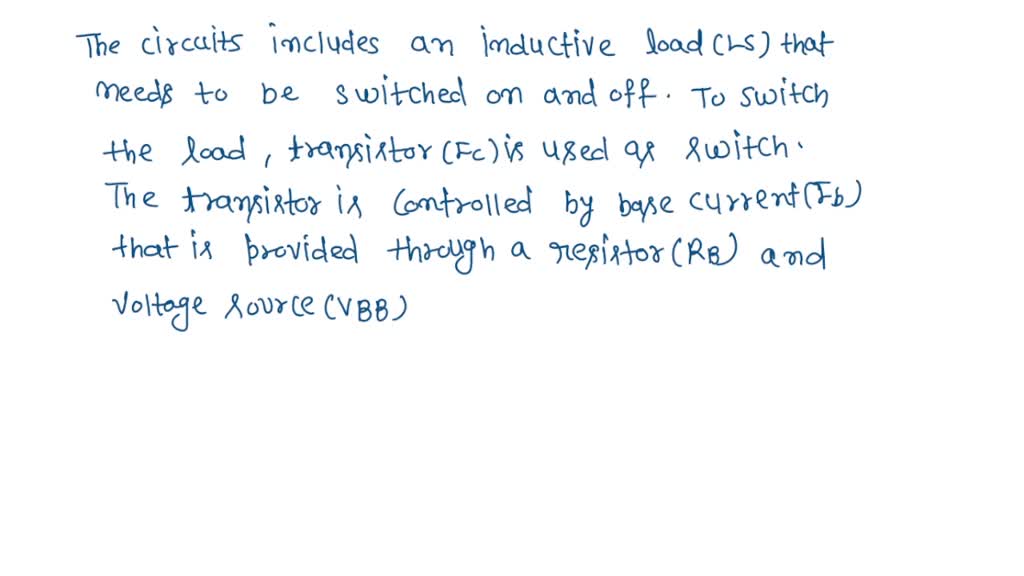 The circuits includes an inductive load (LS) that
needs to be switched on and off. To switch
the load, transistor (Fc) is used as switch.
The transistor is controlled by base current (Ib)
that is provided through a resistor (RB) and
voltage source (VBB)